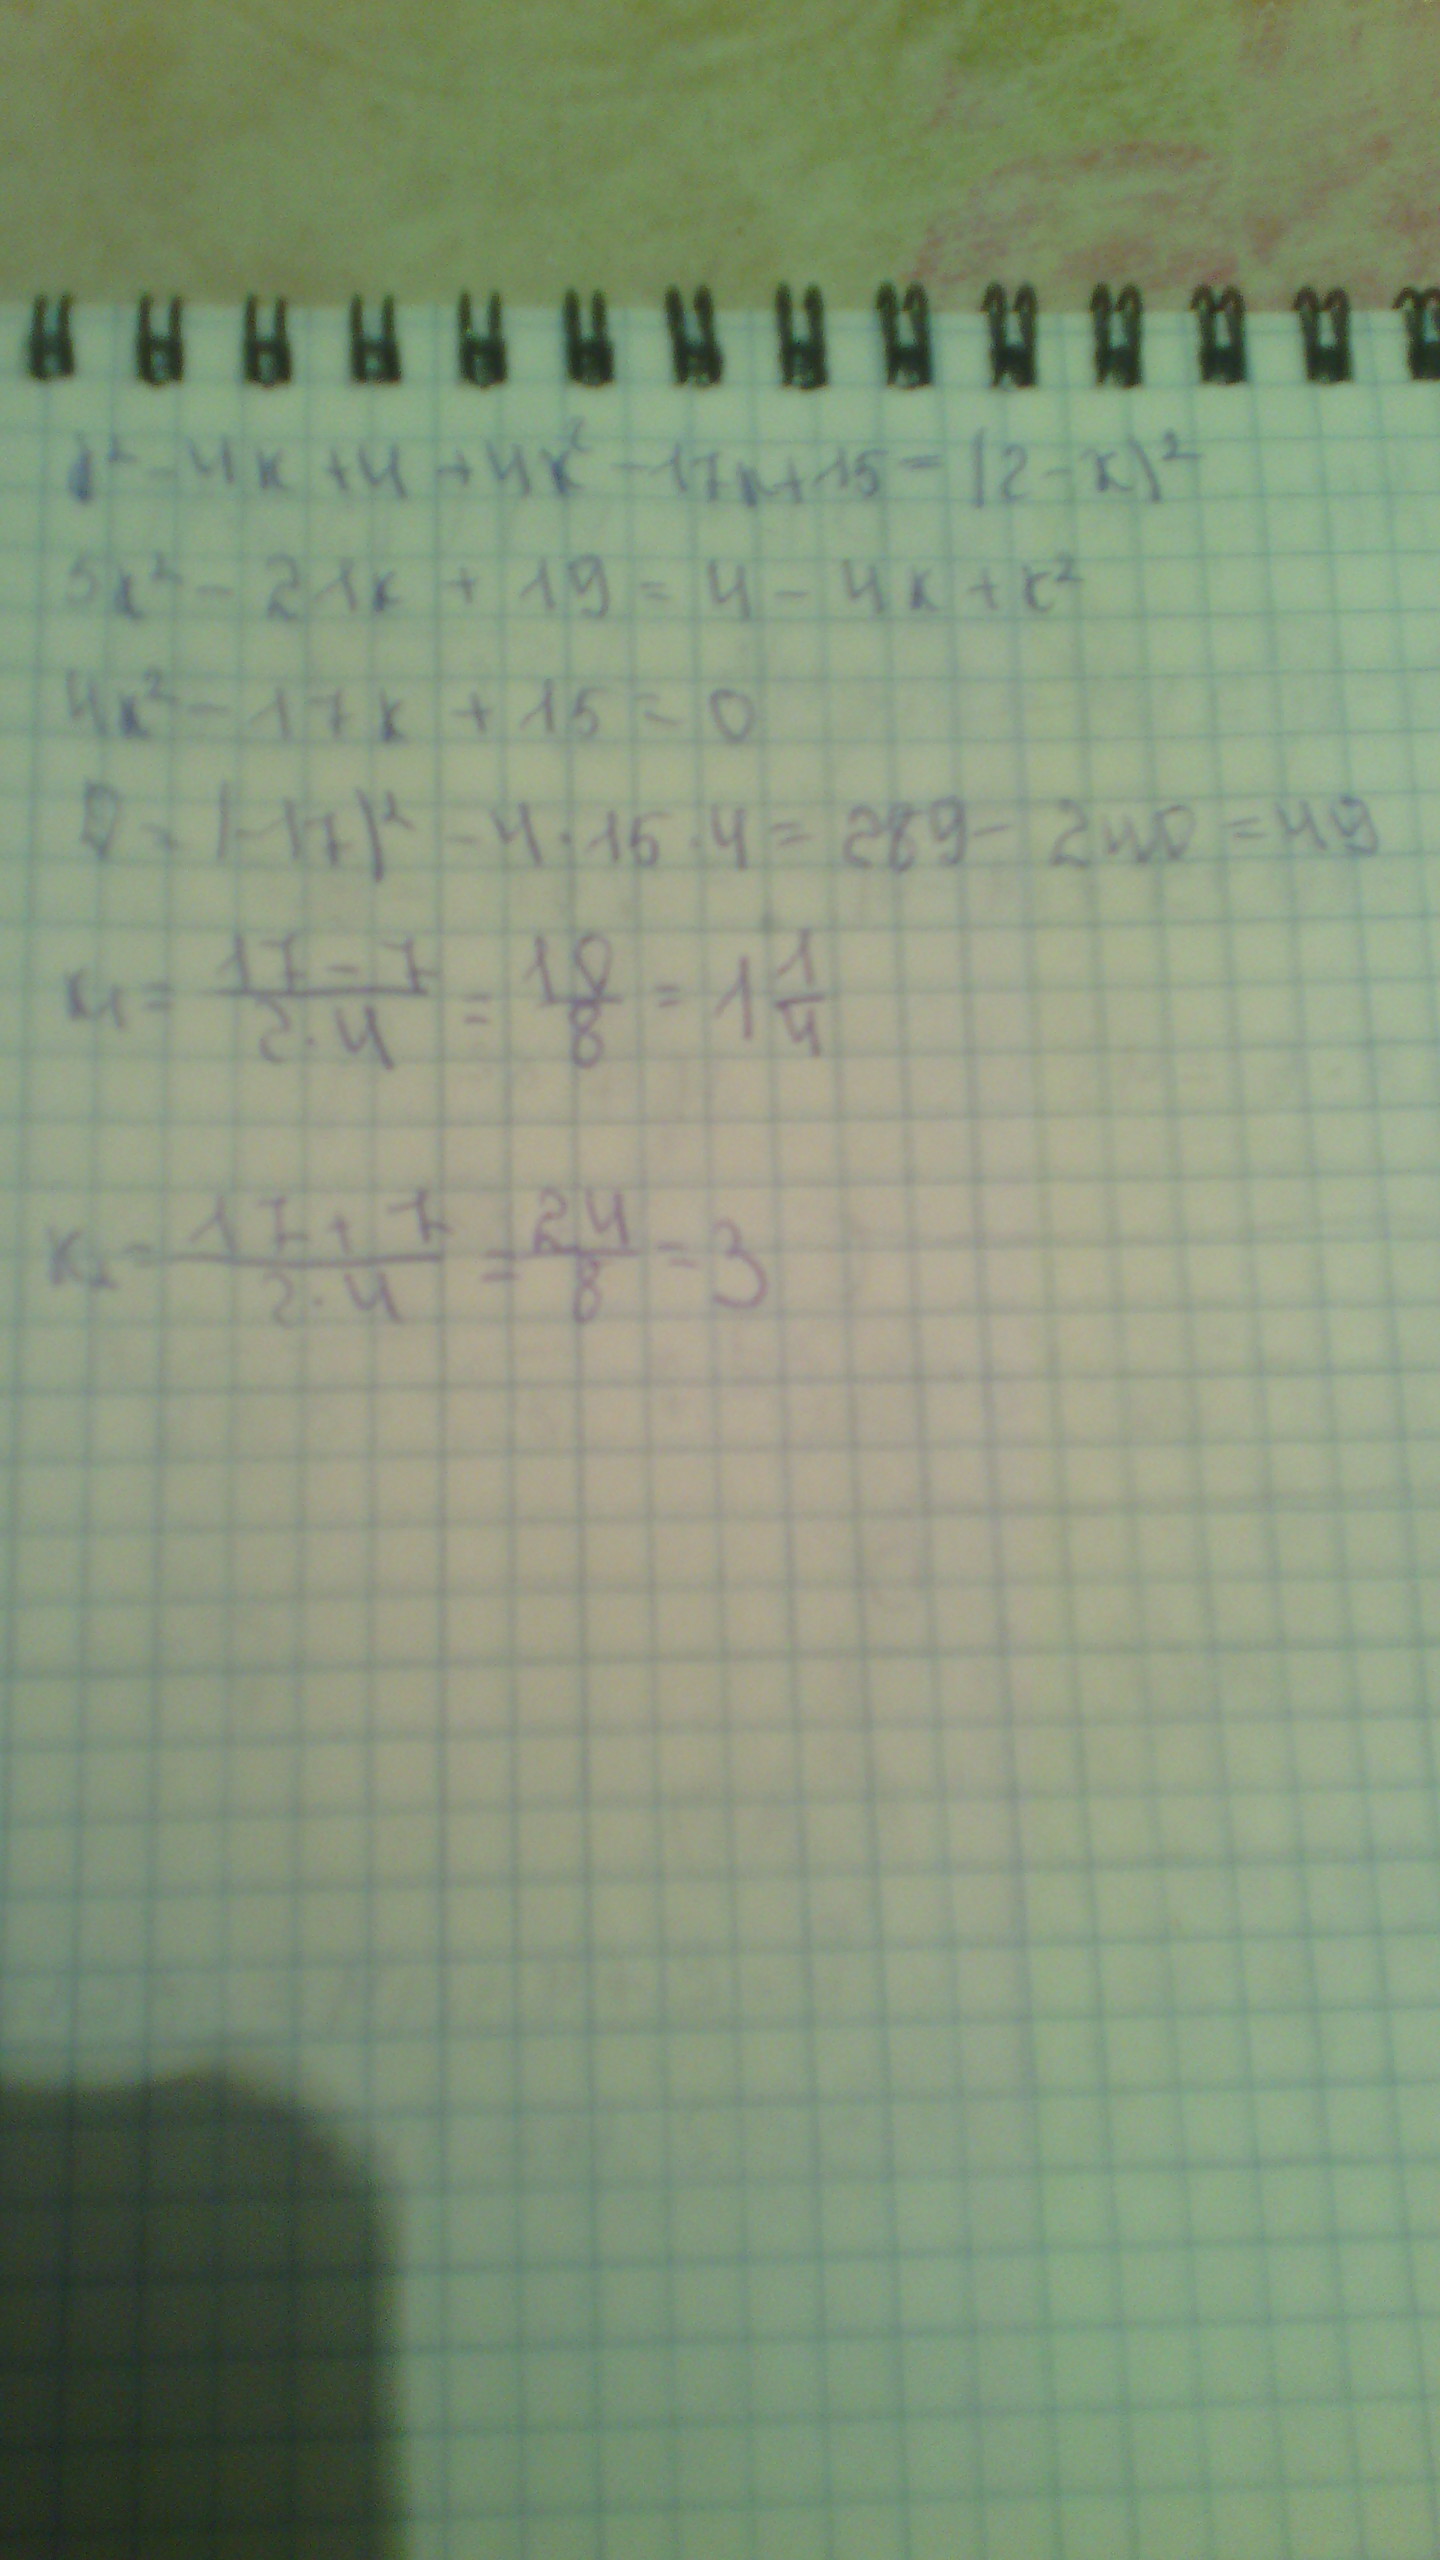 x² - 4x + 4 + 4x² - 17x + 15 = (2 - x)²
5x² - 21x + 19 = 4 - 4x + x²
4x² - 17x + 15 = 0
D = (-17)² - 4·15·4 = 289 - 240 = 49
x₁ = (17 - 7)/(2·4) = 10/8 = 1 1/4
x₂ = (17 + 7)/(2·4) = 24/8 = 3